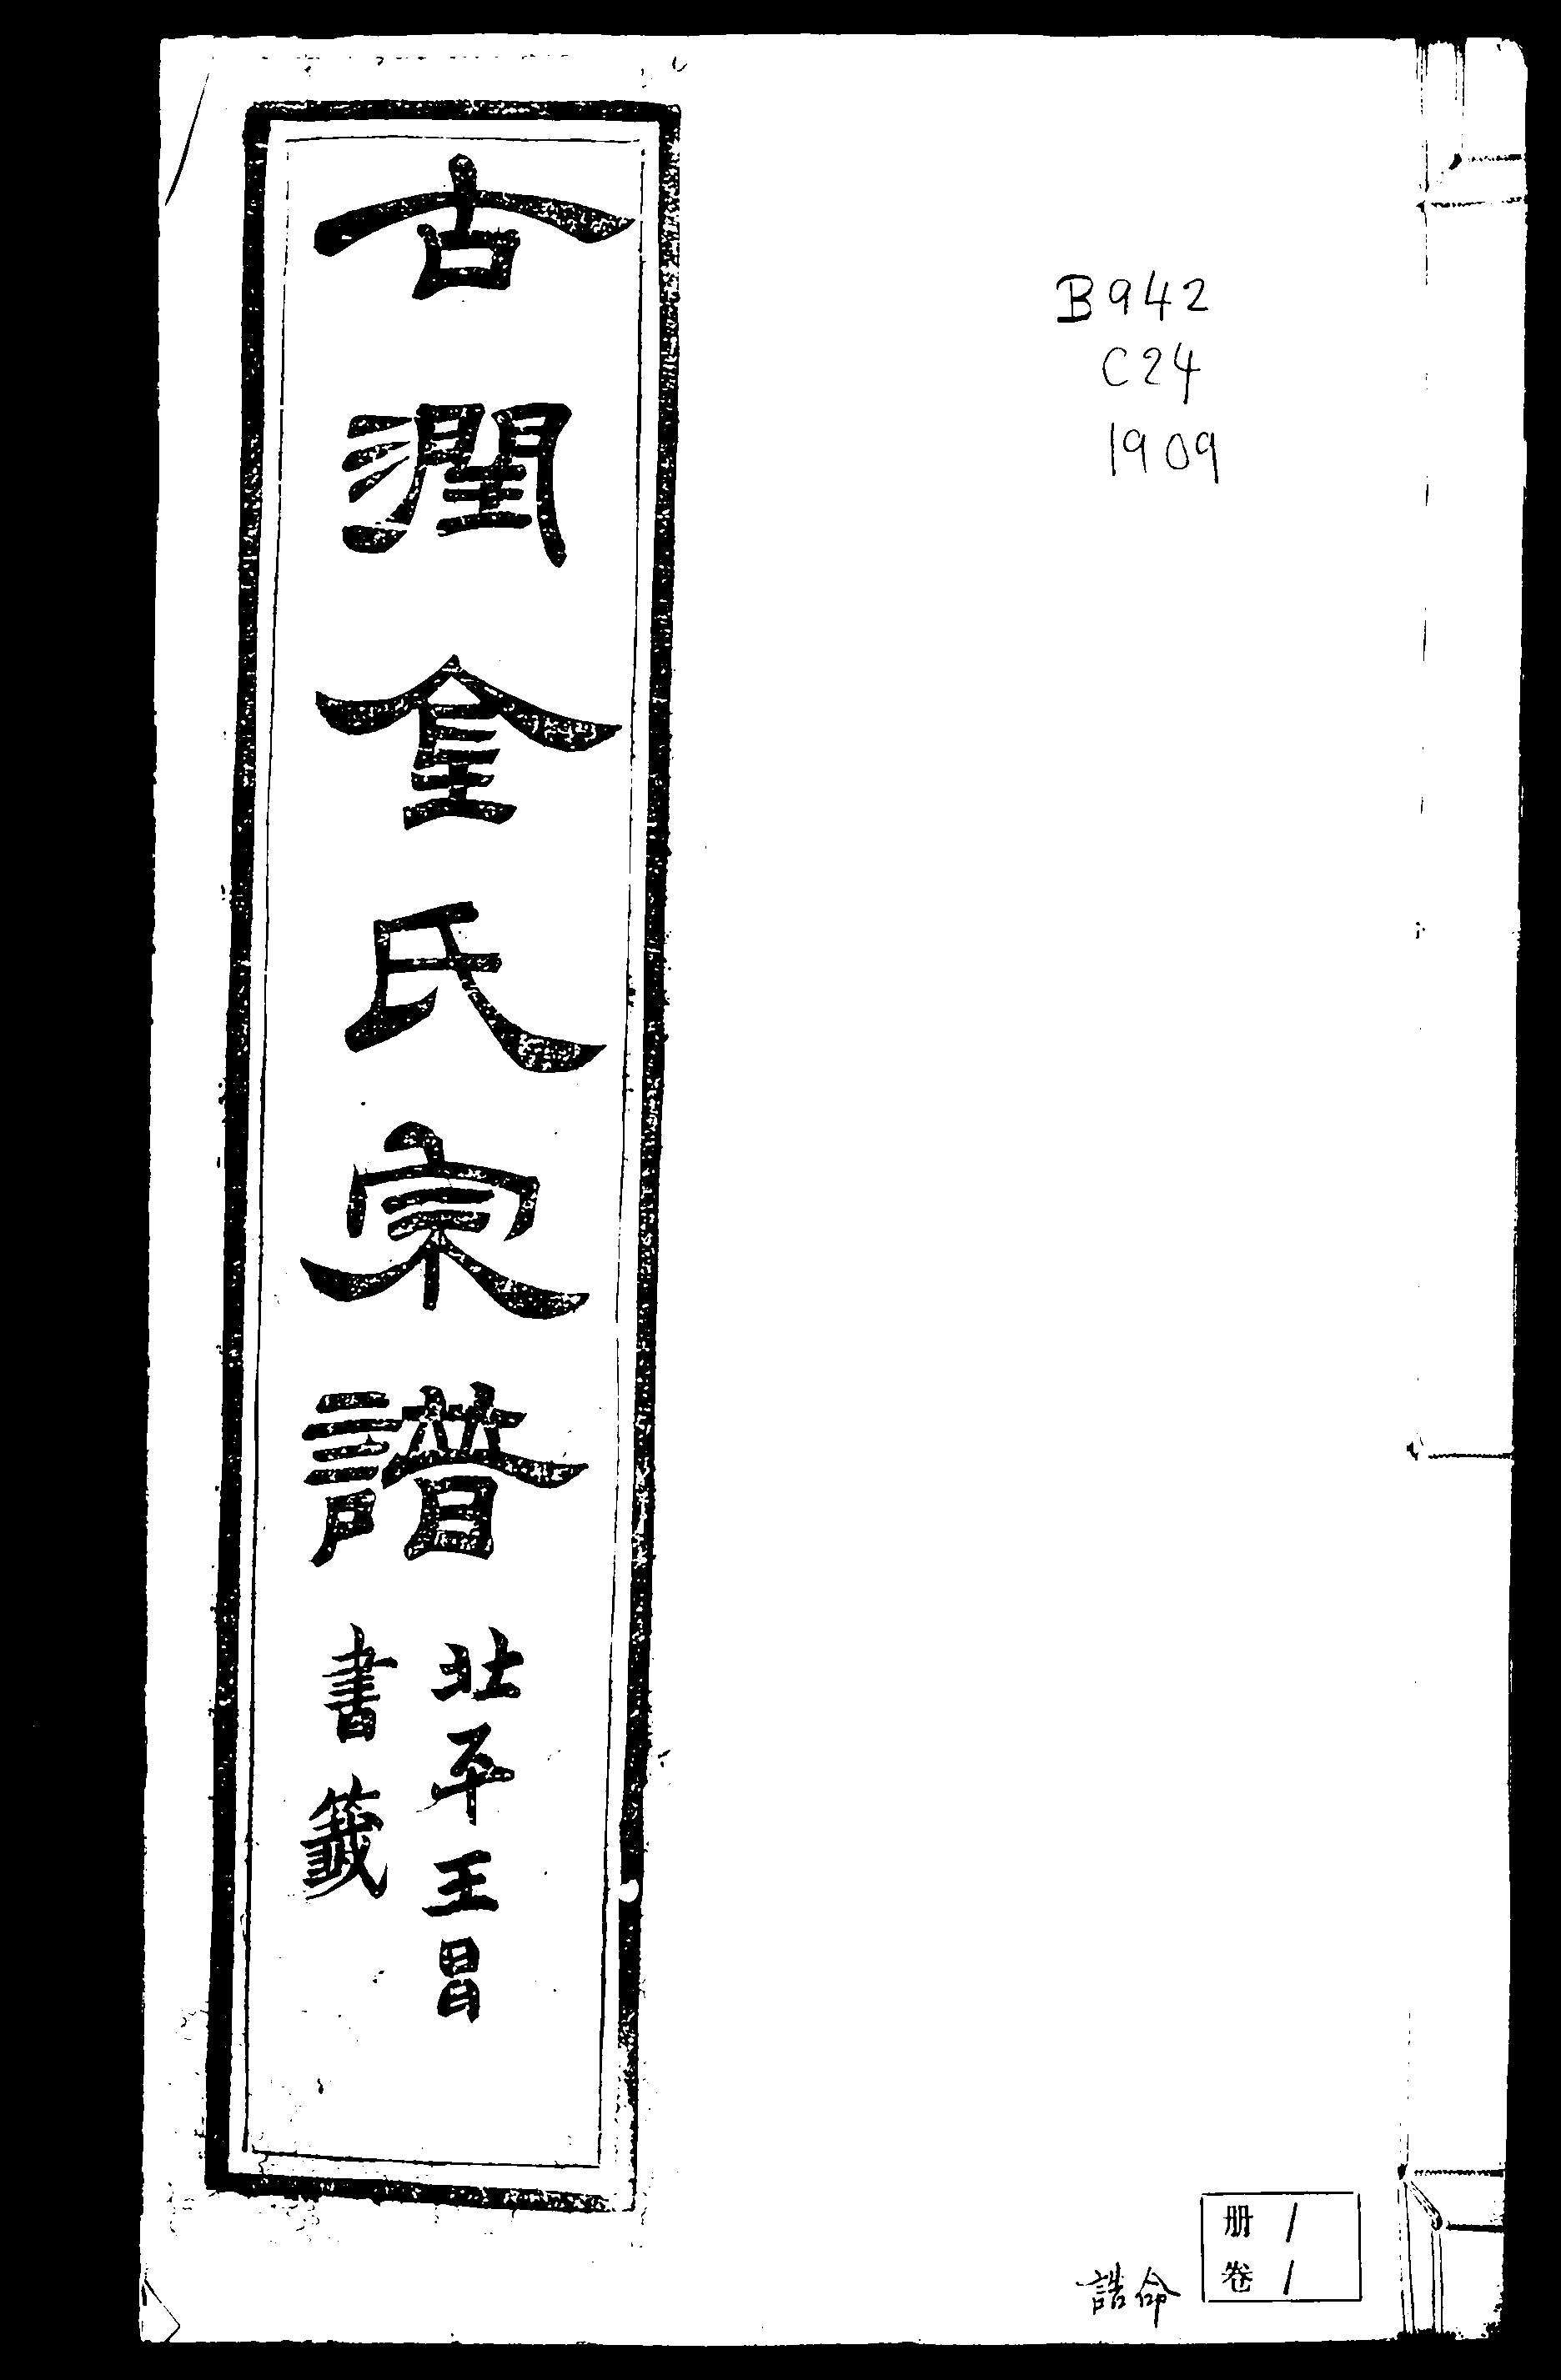 B942
C24
1909
古潤金氏宗譜
北平王
書籤
册 1
卷 1
誥命